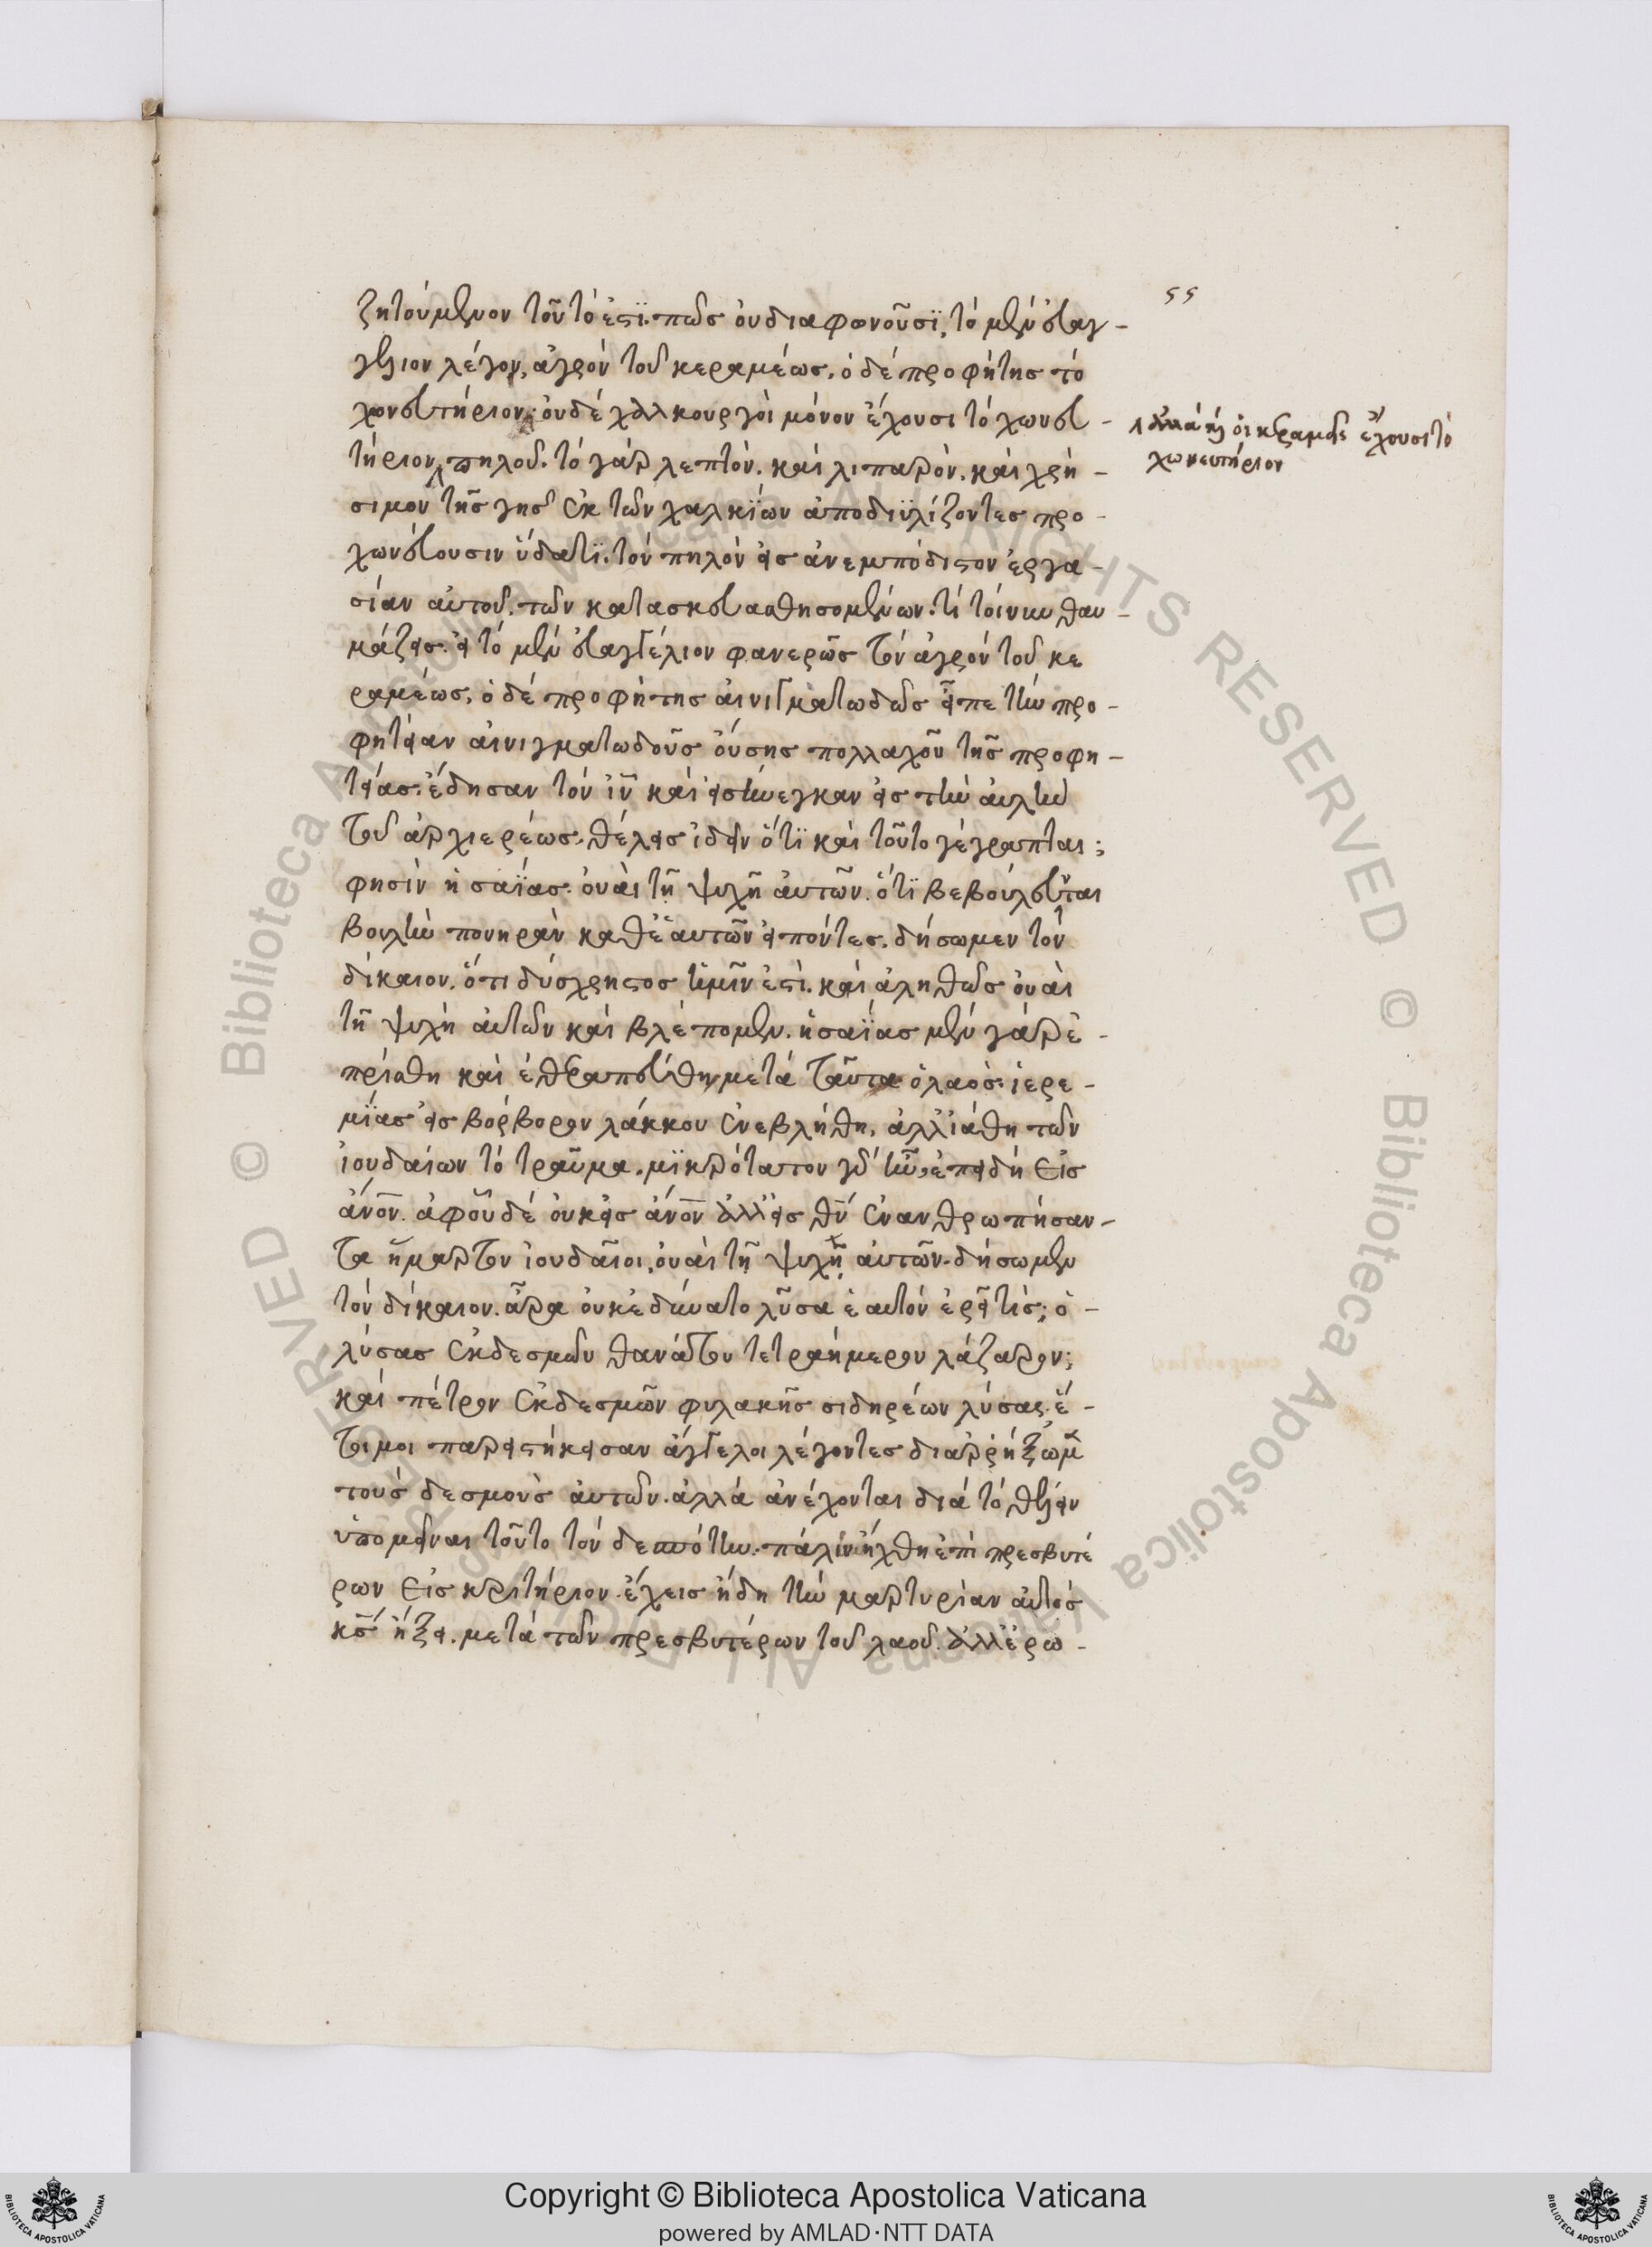 55
ζητούμενον τοῦτό ἐστϊ. πῶς οὐ διαφωνοῦσϊ, τὸ μὲν εὐαγ-
γέλιον λέγον, ἀγρὸν τοῦ κεραμέως, ὁ δὲ προφήτης τὸ
χονευτήριον. οὐδὲ χαλκουργοὶ μόνον ἔχουσι τὸ χωνευ-
τήριον πηλοῦ. τὸ γὰρ λεπτὸν. καὶ λιπαρὸν. καὶ χρή-
σιμον τῆς γῆς ἐκ τῶν χαλκΐων ἀποδιϋλίζοντες προ-
χωνεύουσιν ὕδατϊ. τὸν πηλὸν εἰς ἀνεμπόδιστον ἐργα-
σίαν αὐτοῦ. τῶν κατασκευασθησομένων. τί τοίνυν θαυ-
μάζεις. εἰ τὸ μὲν εὐαγγέλιον φανερῶς τὸν ἀγρὸν τοῦ κε
ραμέως, ὁ δὲ προφήτης αἰνιγματωδῶς εἶπε τὴν προ-
φητείαν αἰνιγματωδοῦς οὔσης πολλαχοῦ τῆς προφη-
τείας. ἔδησαν τὸν ἰν καὶ εἰσήνεγκαν εἰς τὴν αὐλὴν
τοῦ ἀρχιερέως. θέλεις ἰδεῖν ὅτϊ καὶ τοῦτο γέγραπται;
φησὶν ἠσαΐας. οὐαὶ τῇ ψυχῇ αὐτῶν. ὅτϊ βεβούλευνται
βουλὴν πονηρὰν καθ' ἑαυτῶν εἰπόντες. δήσωμεν τὸν
δίκαιον. ὅτι δύσχρηστος ἡμῖν ἐστί. καὶ ἀληθῶς οὐαὶ
τῇ ψυχῇ αὐτῶν καὶ βλέπομεν. ἠσαΐας μὲν γὰρ ἐ-
πρίσθη καὶ ἐθεραπεύθη μετὰ ταῦτα ὁ λαός. ἱερε-
μΐας εἰς βόρβορον λάκκου ἐνεβλήθη, ἀλλ' ἰάθη τῶν
ἰουδαίων τὸ τραῦμα. μϊκρότατον γὰρ ἦν, ἐπειδὴ εἰς
ἄνον. ἀφοῦ δὲ οὐκ εἰς ἄνον ἀλλ' εἰς θν ἐνανθρωπήσαν-
τα ἥμαρτον ἰουδαῖοι, οὐαὶ τῇ ψυχῇ αὐτῶν. δήσωμεν
τὸν δίκαιον. ἆρα οὐκ ἐδύνατο λῦσα ἑαυτὸν ἐρεῖ τίς; ὁ-
λύσας ἐκ δεσμῶν θανάτου τετραήμερον λάζαρον;
καὶ πέτρον ἐκ δεσμῶν φυλακῆς σιδηρέων λύσας. ἕ-
τοιμοι παρειστήκεισαν ἄγγελοι λέγοντες διαρρήξωμεν
τοὺς δεσμοὺς αὐτῶν. ἀλλὰ ἀνέχονται διὰ τὸ θέλειν
ὑπομεῖναι τοῦτο τὸν δεσπότην. πάλιν ἤχθη ἐπὶ πρεσβυτέ
ρων εἰς κριτήριον. ἔχεις ἤδη τὴν μαρτυρίαν αὐτὸς
κς ἥξει. μετὰ τῶν πρεσβυτέρων τοῦ λαοῦ. ἀλλ' ἐρω-
ἀλλὰ καὶ οἱ κεραμεῖς ἔχουσι τὸ
χωνευτήριον
Copyright © Biblioteca Apostolica Vaticana
powered by AMLAD·NTT DATA
© Biblioteca Apostolica Vaticana ALL RIGHTS RESERVED © Biblioteca Apostolica Vaticana ALL RIGHTS RESERVED